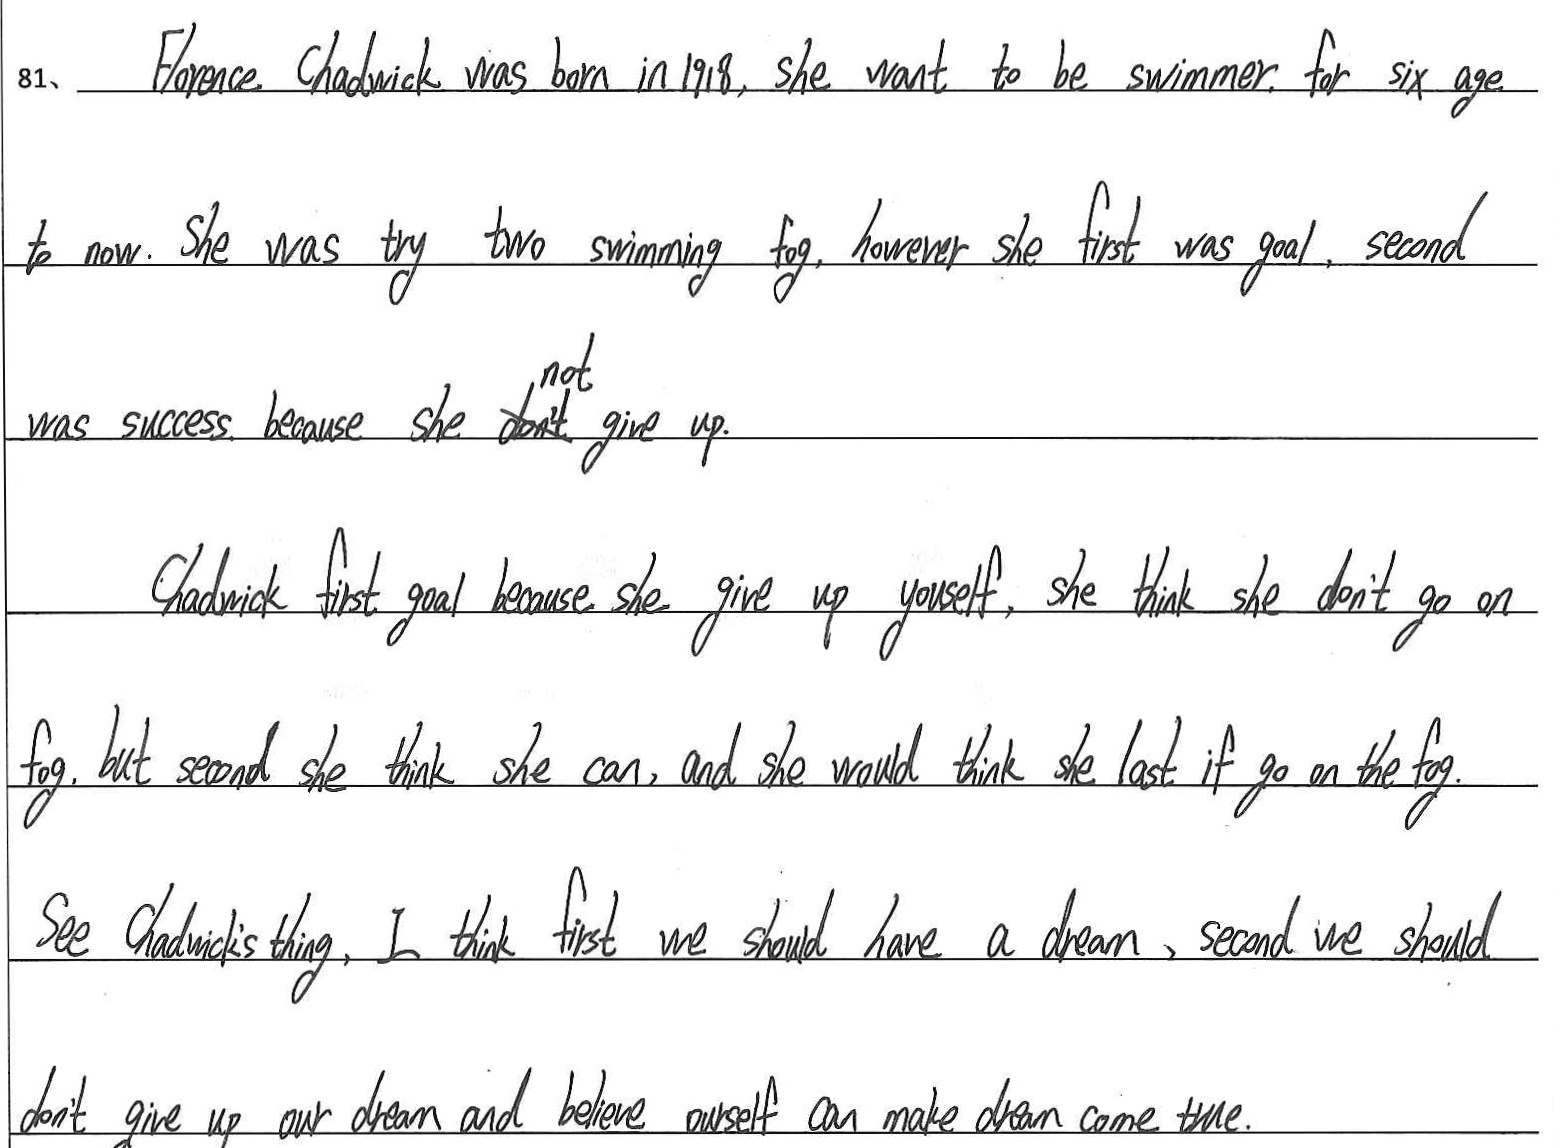 81、 Florence Chadwick was born in 1918, she want to be swimmer. for six age
to now. She was try two swimming fog, however she first was goal, second
not
was success. because she don't give up.
Chadwick first goal because she give up youself, she think she don't go on
fog. but second she think she can, and she would think she last if go on the fog.
See Chadwick's thing, I think first we should have a dream, second we should
don't give up our dream and believe ourself can make dream come true.